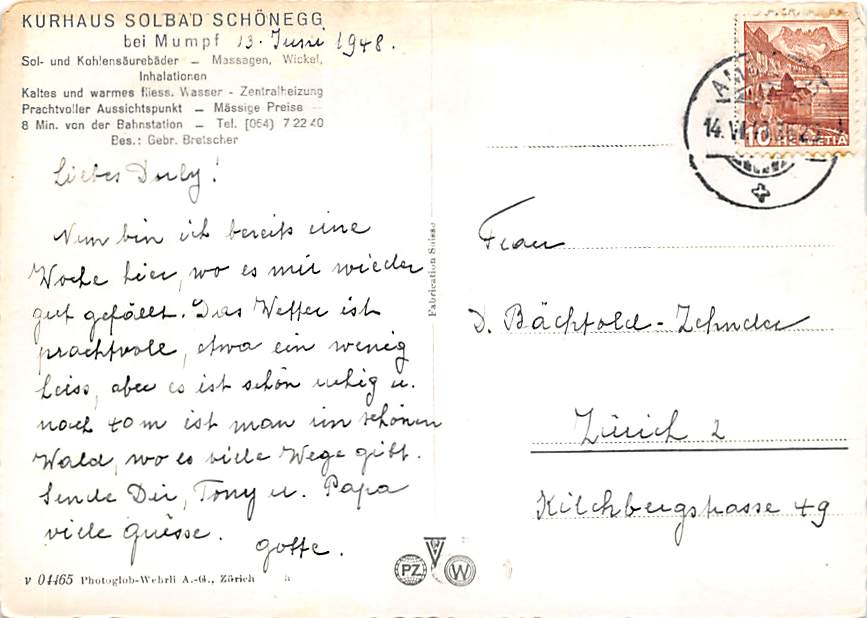 KURHAUS SOLBAD SCHÖNEGG
bei Mumpf 13. Juni 1948.
Sol- und Kohlensäurebäder – Massagen, Wickel,
Inhalationen
Kaltes und warmes fliess. Wasser - Zentralheizung
Prachtvoller Aussichtspunkt – Mässige Preise –
8 Min. von der Bahnstation – Tel. (064) 7 22 40
Bes.: Gebr. Bretscher
Liebes Dorly!
Nun bin ich bereits eine
Woche hier, wo es mir wieder
gut gefällt. Das Wetter ist
prachtvoll, etwa ein wenig
heiss, aber es ist schön ruhig u.
nach 40 m ist man im schönen
Wald, wo es viele Wege gibt.
Sende Dir, Tony u. Papa
viele Grüsse.
Gotte.
V 04465 Photoglob-Wehrli A.-G., Zürich
Fabrication Suisse
PZ
V
W
10 HELVETIA
14. VI
Frau
D. Bächtold-Zehnder
Zürich 2
Kilchbergstrasse 49